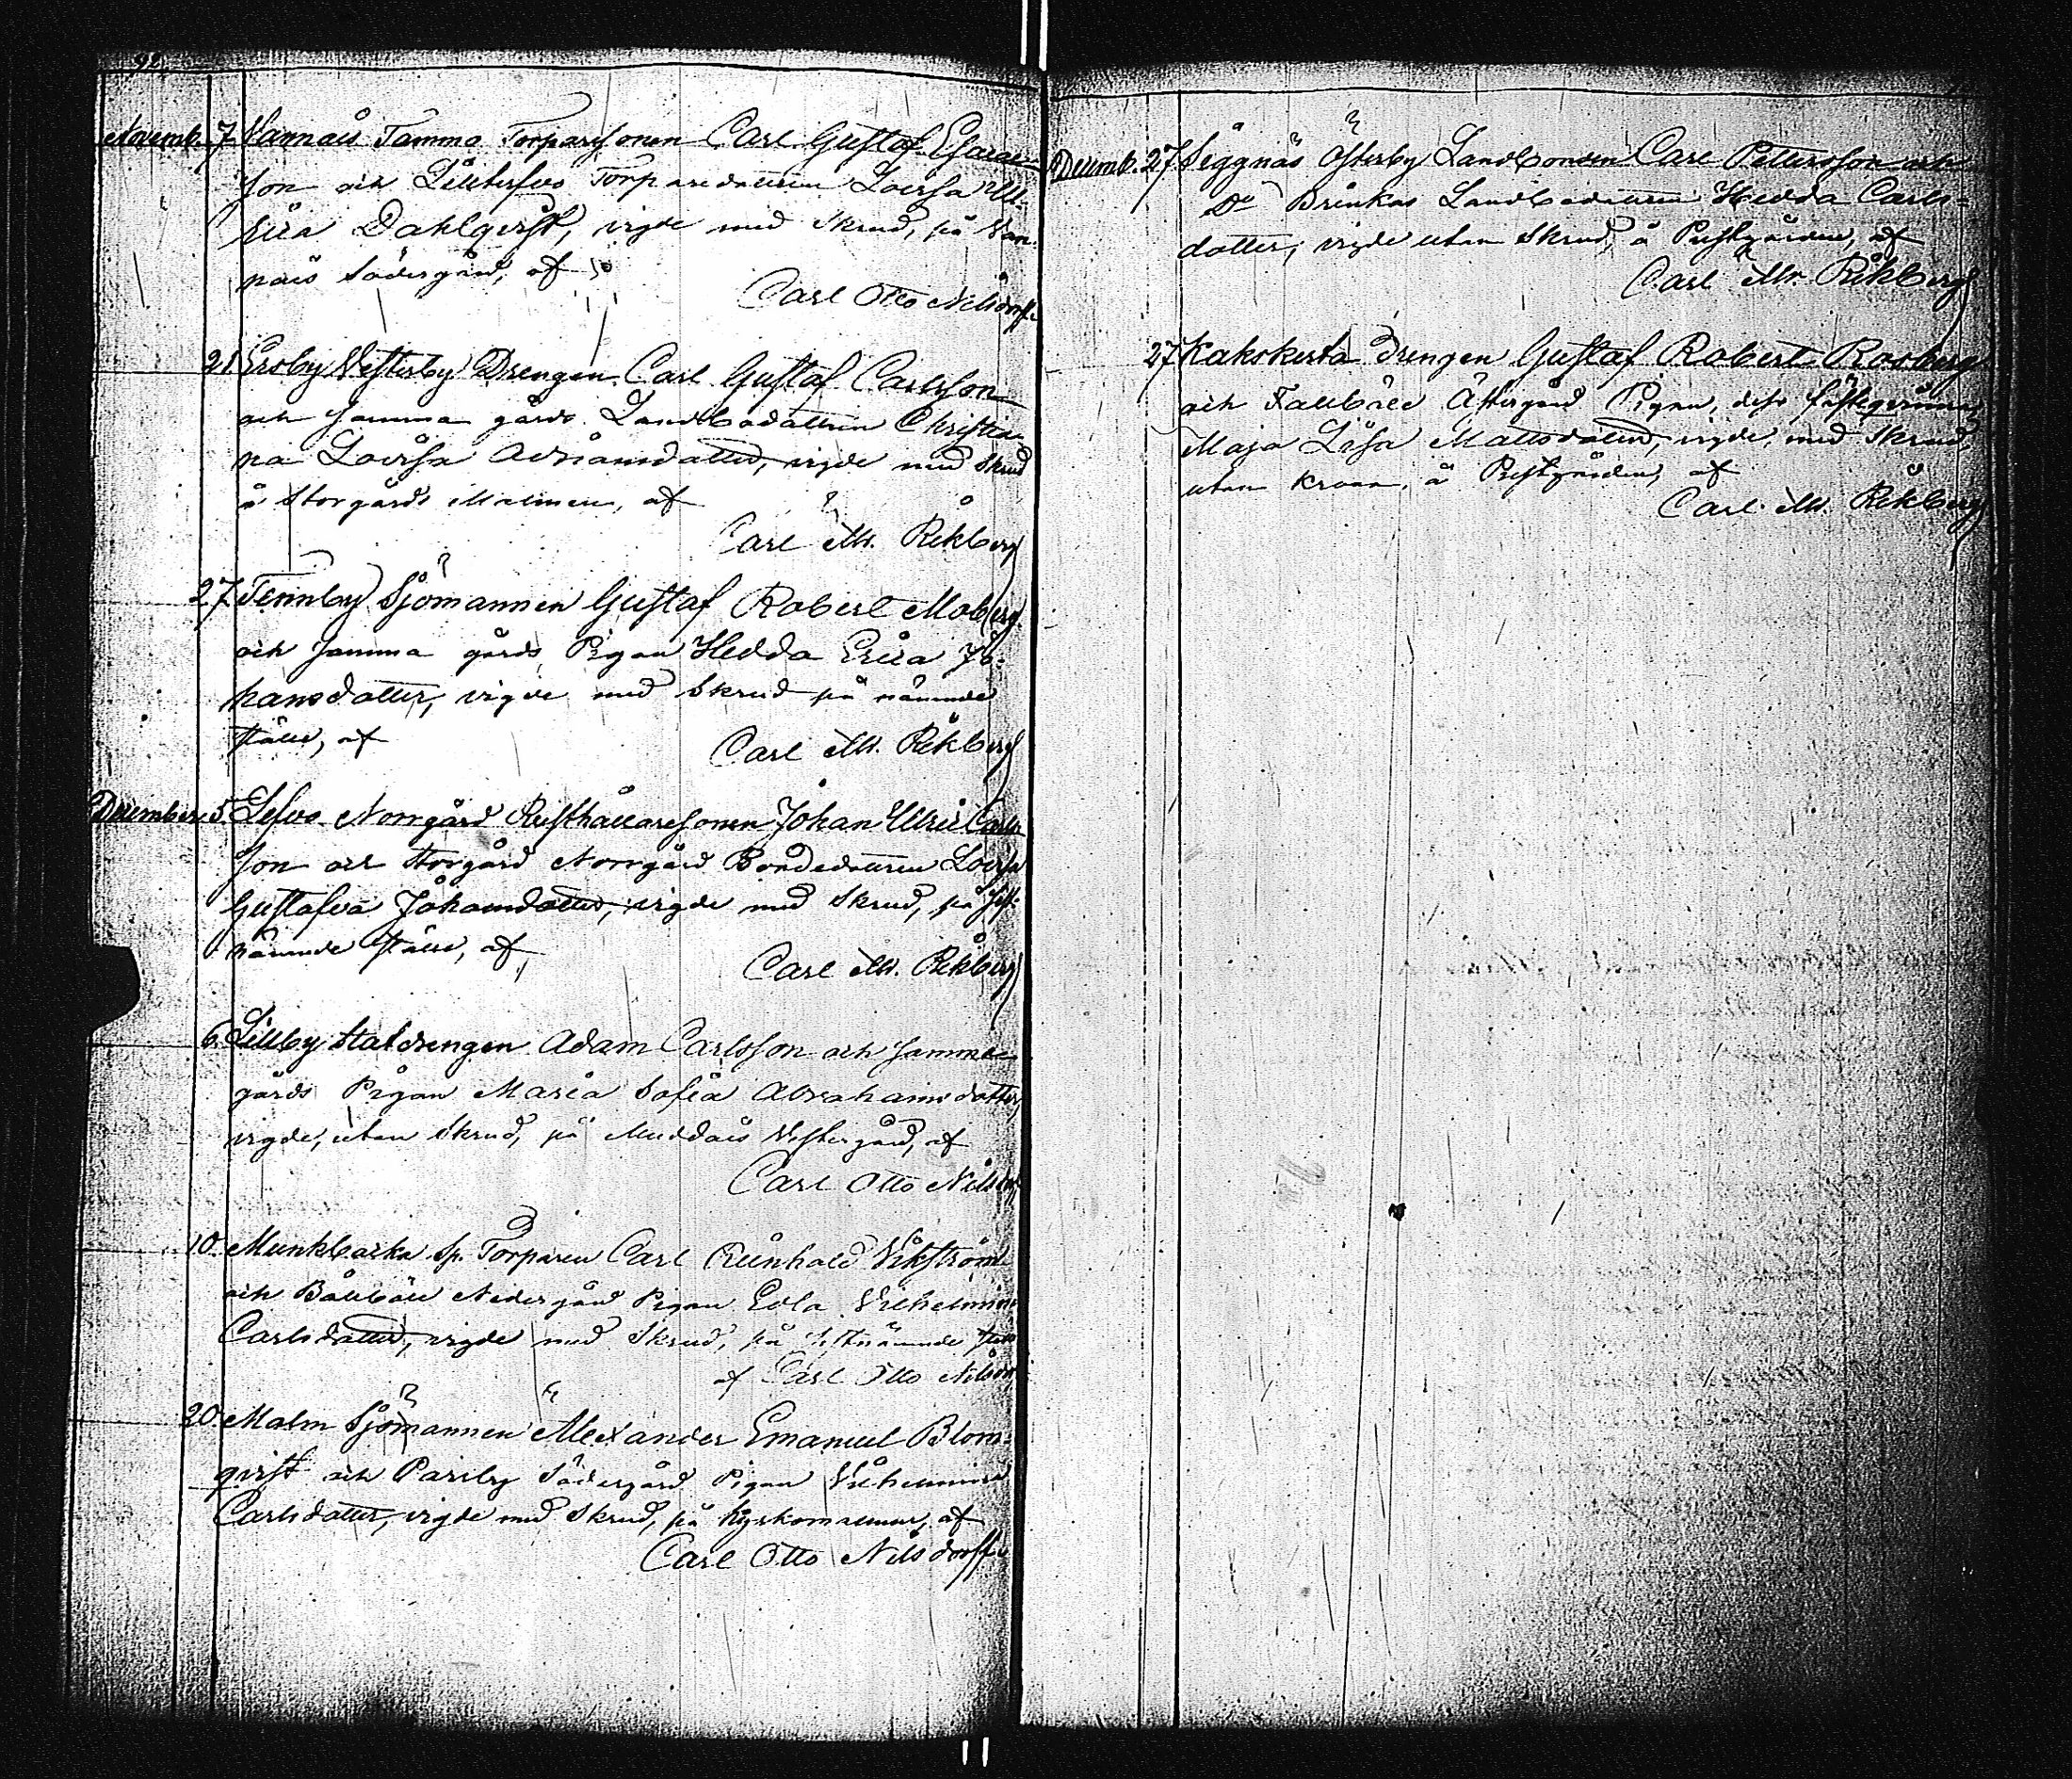 Novemb. 7. Vannais Tammo Torparesonen Carl Gustaf Esaias-
son och Torparedottren Lovisa Ul-
rica Dahlqvist, vigde med Skrud, på Van-
nais Södergård, af
Carl Otto Nilsdorff
21 Ersby Vesterby Drengen Carl Gustaf Carlsson
och samma gårds Landbodottren Christi-
na Lovisa Adriansdotter, vigde med Skrud
å Storgårds Malmen, af
Carl M. Rekberg
27 Tennby Sjömannen Gustaf Robert Moberg
och samma gårds Pigan Hedda Erica Jo-
hansdotter, vigde med Skrud på nämnde
ställe, af
Carl M. Rekberg
December 5. Lofvo Norrgård Rusthållaresonen Johan Ulric Carls-
son och Storgård Norrgård Bondedottren Lovisa
Gustafva Johansdotter, vigde med Skrud, på sist-
nämnde ställe, af
Carl M. Rekberg
6. Lillby Statdrengen Adam Carlsson och samma
gårds Pigan Maria Sofia Abrahamsdotter,
vigde, utan Skrud, på Muddais Vestergård, af
Carl Otto Nilsdorff
10. Munkbacka Sp. Torparen Carl Reinhold Vikström
och Nedergård Pigan Eva Vilhelmina
Carlsdotter, vigde med Skrud, på sistnämnde ställe
af Carl Otto Nilsdorff
20. Malm Sjömannen Alexander Emanuel Blom-
qvist och Parsby Södergård Pigan Vilhelmina
Carlsdotter, vigde med Skrud, på Kyrkomalmen, af
Carl Otto Nilsdorff
Decemb. 27 Seggnäs Österby Landbonden Carl Pettersson och
Do Brinkas Landbodottren Hedda Carls-
dotter, vigde utan Skrud, å Prestgården, af
Carl M. Rekberg
27 Kakskerta Drengen Gustaf Robert Rosberg
och Åttergård Pigan, dess fästeqvinna,
Maja Lisa Mattsdotter, vigde, med Skrud,
utan krona, å Prestgården, af
Carl M. Rekberg